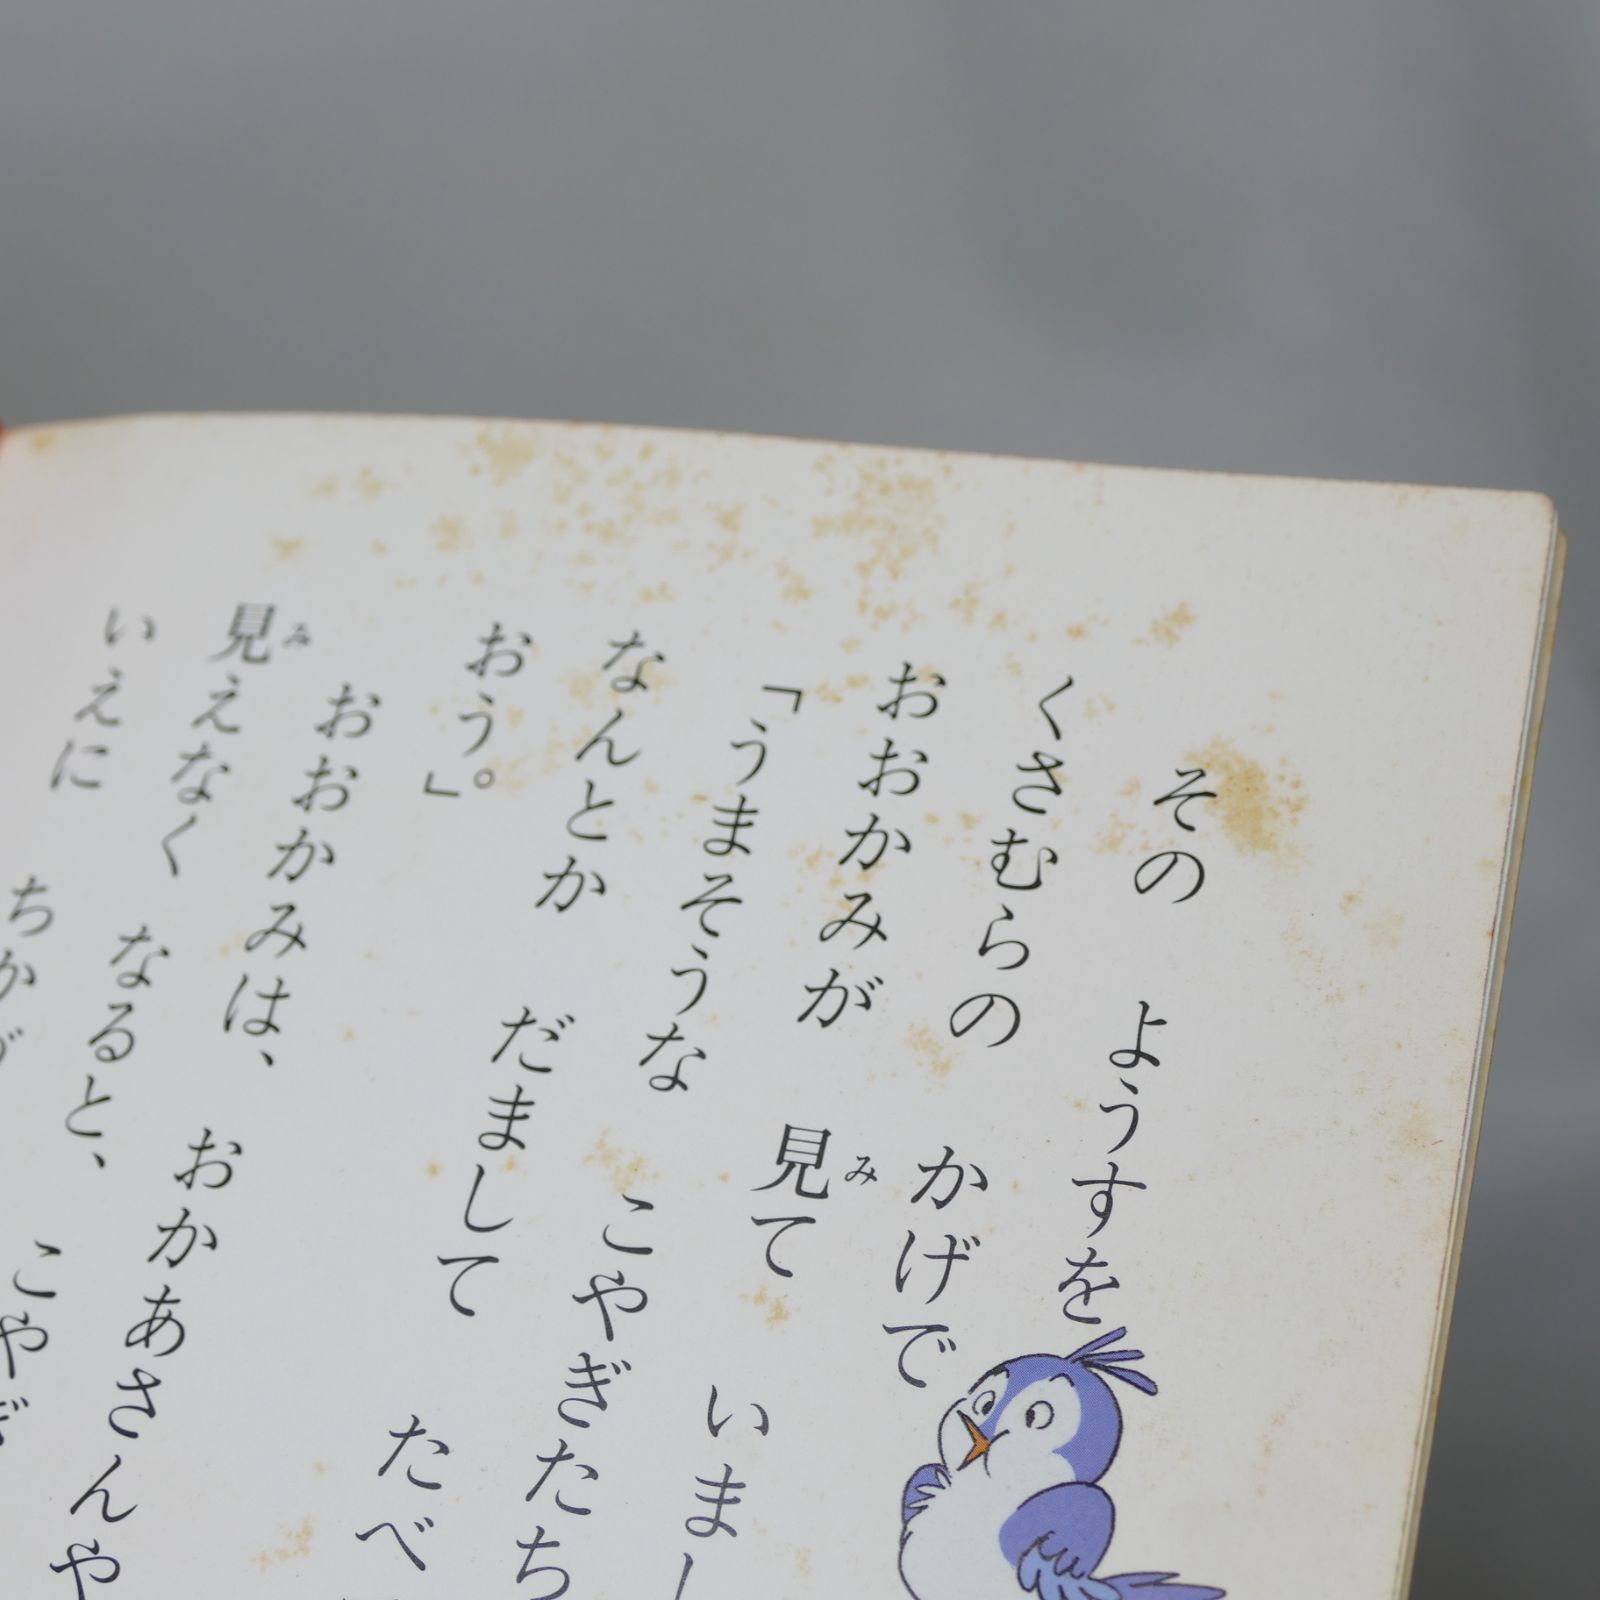 その ようすを
くさむらの かげで
おおかみが 見て いまし
「うまそうな こやぎたち
なんとか だまして たべ
おう。」
おおかみは、 おかあさんや
見えなく なると、 こやぎ
いえに ちかづ